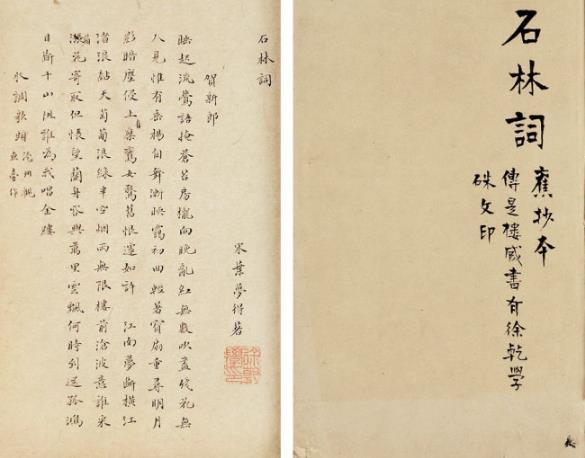 石林詞
舊抄本
傳是樓藏書有徐乾學
硃文印
石林詞
宋葉夢得著
賀新郎
睡起流鶯語掩蒼苔房櫳向晚亂紅無數吹盡殘花無
人見惟有垂楊自舞漸暖靄初回輕著寶扇重尋明月
影暗塵侵上有乘鸞女驚舊恨遽如許 江南夢斷橫江
渚浪黏天萄漲綠半空烟雨無限樓前滄波意誰采
蘋花寄取但悵望蘭舟容與萬里雲帆何時到送孤鴻
目斷千山阻誰為我唱金縷
水調歌頭 濠州觀魚臺作
徐乾學印